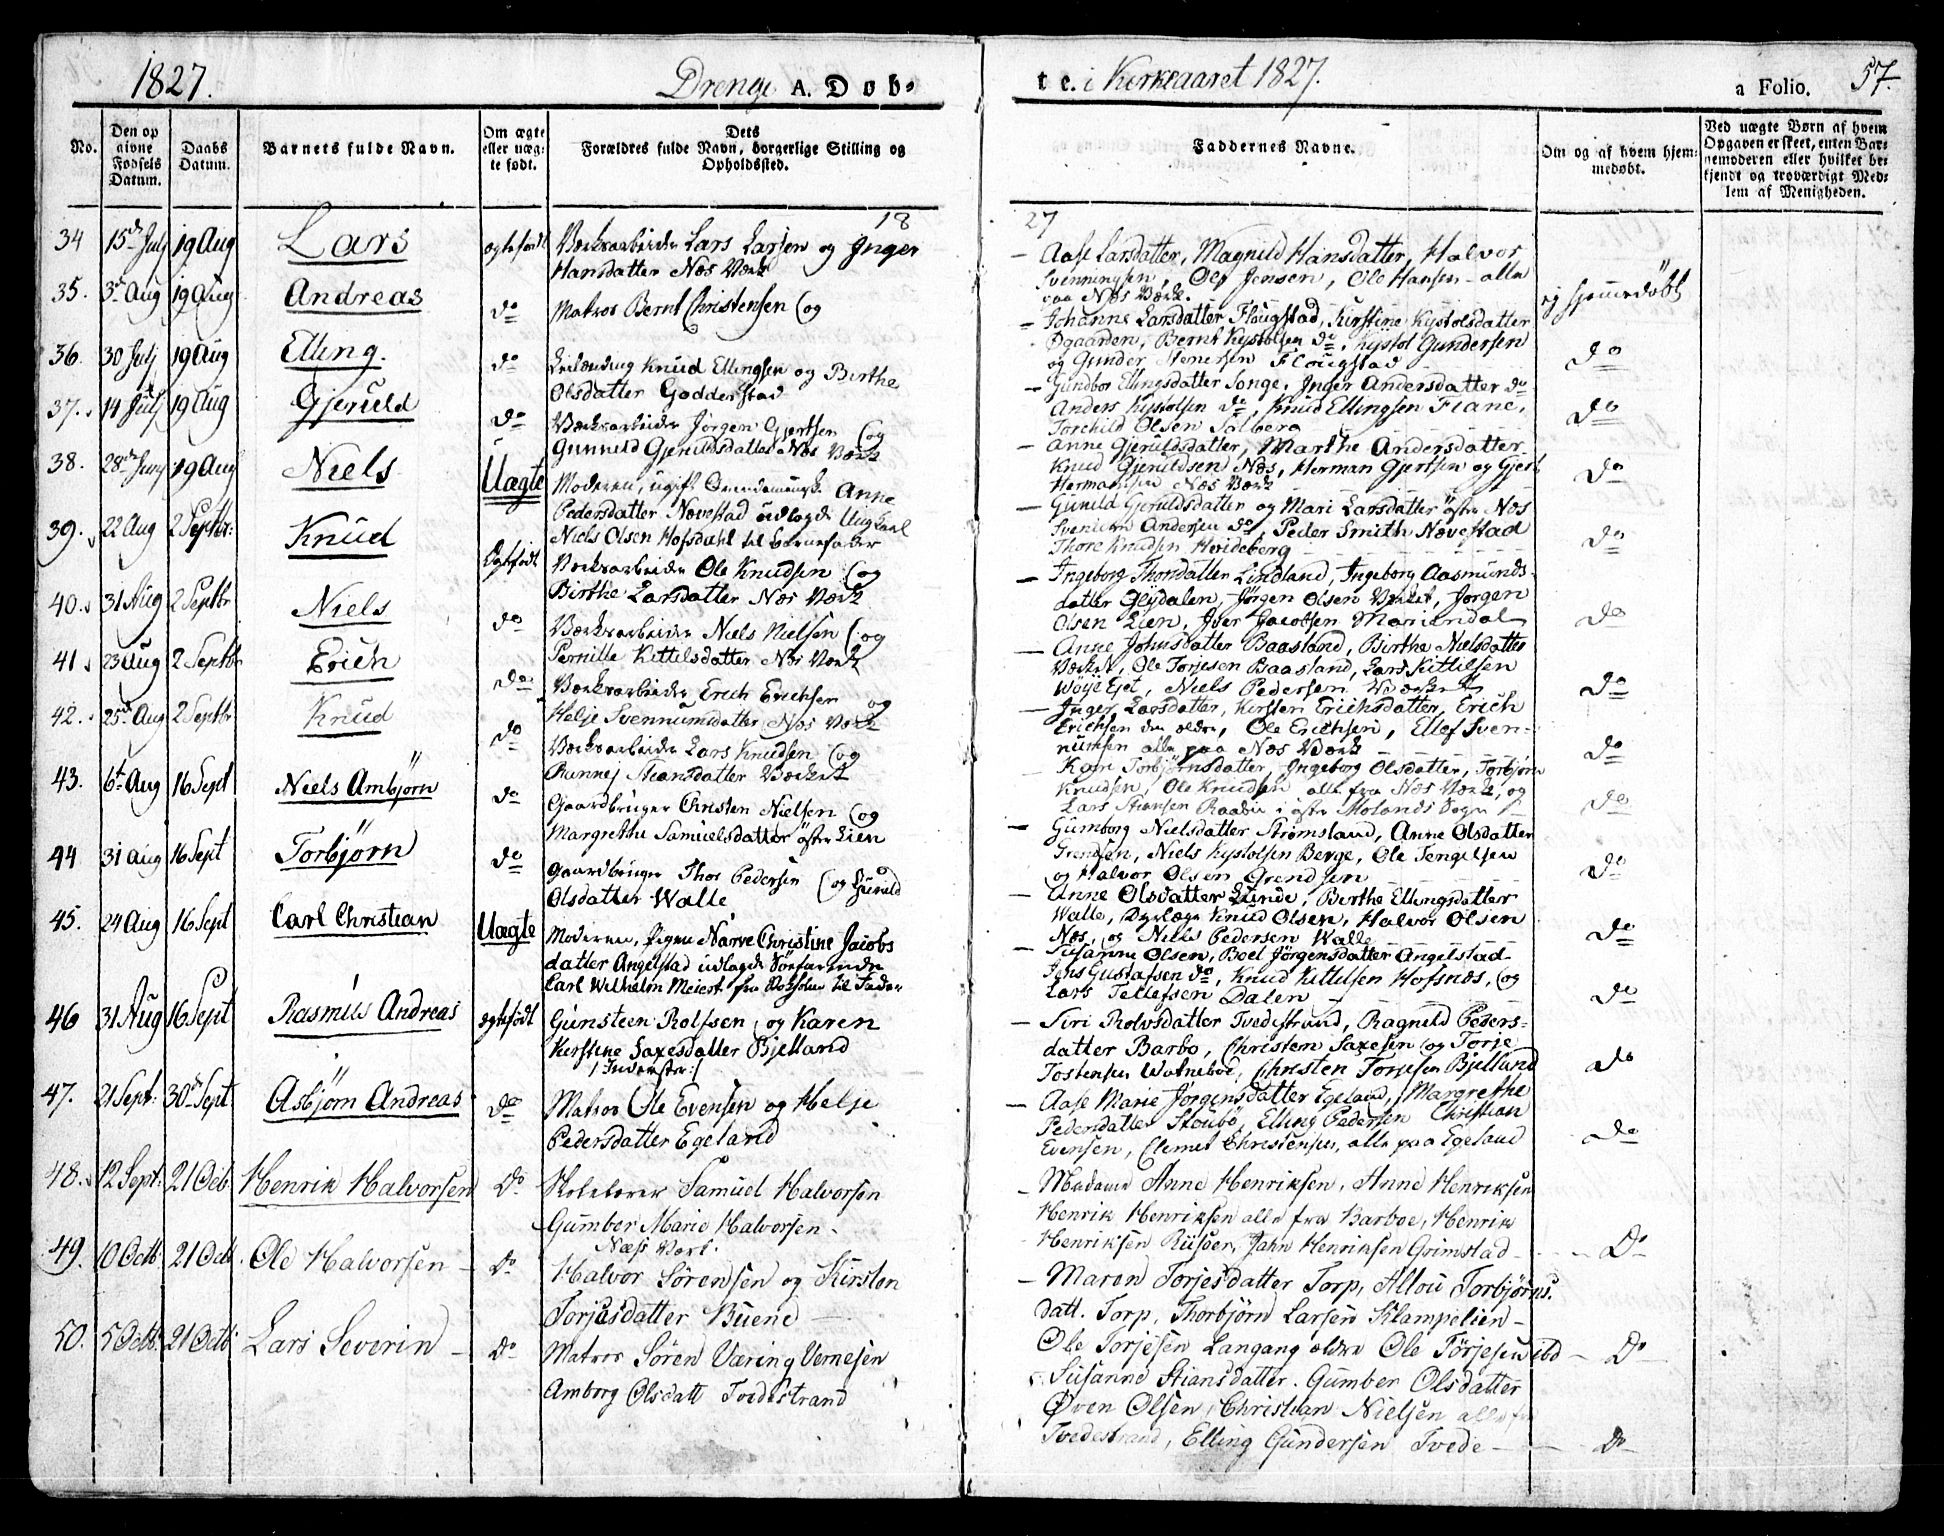 1827. Drenge A. Døb-
te. i Kirkeaaret 1827. a Folio. 57.
No. Den opgivne Fødsels Datum. Daabs Datum. Barnets fulde Navn. Om ægte eller uægte født. Dets Forældres fulde Navn, borgerlige Stilling og Opholdssted.
Faddernes Navne. Om og af hvem hjemmedøbt. Ved uægte Børn af hvem Opgaven er skeet, enten Barnemoderen eller hvilket bekjendt og troværdigt Medlem af Menigheden.
18
27
34 15de Julj 19 Aug Lars ægtefødt Værksarbeider Lars Larsen og Inger
Hansdatter Næs Værk
35. 3d Aug 19 Aug Andreas do Matros Bernt Christensen (og
36. 30 Julj 19 Aug Elling. do Knud Ellingsen og Birthe
Olsdatter Godderstad
37. 14 Julj 19 Aug Gjeruld do Værksarbeider Jørgen Gjertsen (og
Gunneld Gjeruldsdatter Næs Værk
38. 28de Junj 19 Aug Niels Uægte Moderen, ugift Anne
Pedersdatter Nævestad udlagde Ung Karl
Niels Olsen Hofsdahl til Barnefader
39. 22 Aug 2 Septbr: Knud Ægtefødt Værksarbeider Ole Knudsen (og
Birthe Larsdatter Næs Værk
40. 31 Aug 2 Septbr Niels do Værksarbeider Niels Nielsen (og
Pernille Kittilsdatter Næs Værk
41. 23 Aug 2 Septbr Erich do Værksarbeider Erich Erichsen og
Helje Svennumsdatter Næs Værk
42. 25de Aug 2 Septbr Knud do Værksarbeider Lars Knudsen (og
Rannej Stiansdatter Værket
43. 6t Aug 16 Sept Niels Ambjørn do Gaardbruger Christen Nielsen (og
Margrethe Samuelsdatter østre Lien
44 31 Aug 16 Sept Torbjørn do Gaardbruger Thor Pedersen (og Gunild
Olsdatter Walle
45. 24 Aug 16 Sept Carl Christian Uægte Moderen, Pigen Narve Christine Jacobs
datter Angelstad udlagde Søefarende
Carl Wilhelm Meiert fra til Fader
46 31 Aug 16 Sept Rasmus Andreas ægtefødt Gunsteen Rolfsen, og Karen
Kirstine Saxesdatter Bjelland
/:Inderster:/
47. 21 Sept: 30de Sept Asbjørn Andreas do Matros Ole Evensen og Helje
Pedersdatter Egeland
48. 12 Sept: 21 Octb Henrik Halvorsen Do Skolelærer Samuel Halvorsen
Gumber Marie Halvorsen.
Næss Værk.
49. 10 Octb 21 Octb. Ole Halvorsen Do Halvor Sørensen og Kirsten
Torjesdatter Buene
50. 5 Octb: 21 Octb: Lars Severin Do Matros Søren Væring Vernesen
Amborg Olsdatt Tvedestrand
Aase Larsdatter, Magnild Hansdatter, Halvor
Svenningsen, Ole Jensen, Ole Hansen - alle
paa Næs Værk. ej hjemmedøbt
Johanne Larsdatter Flougstad, Kirstine Kystolsdatter
Øgaarden, Bernt Kystolsen do, Kystol Gundersen
og Gunder Stenersen Flougstad do
Gundbor Ellingsdatter Songe, Inger Andersdatter do
Anders Kystolsen do, Knud Ellingsen Fiane,
Torchild Olsen Solberg do
Anne Gjeruldsdatter, Marthe Andersdatter
Knud Gjeruldsen Næs, Herman Gjertsen og Gjert
Hermansen Næs Værk do
Gunild Gjeruldsdatter og Mari Larsdatter østre Næs
Andersen do, Peder Smith Nævestad
Thore Knudsen Hvideberg do
Ingeborg Thorsdatter Lindland, Ingeborg Aasmunds-
datter Gljdalen, Jørgen Olsen Værket, Jørgen
Olsen Lien, Iver Jacobsen Mariendal do
Anne Johnsdatter Baasland, Birthe Nielsdatter
Værket, Ole Torjesen Baasland, Lars Kittilsen
Wøije Ejet, Niels Pedersen Værket do
Inger Larsdatter, Kirsten Erichsdatter, Erich
Erichsen den ældre, Ole Erichsen, Ellef Sven-
numsen alle paa Næs Værk do
Kari Torbjørnsdatter, Ingeborg Olsdatter, Torbjørn
Knudsen, Ole Knudsen alle fra Næs Værk, og
Lars Stiansen Raabu i østre Molands Sogn do
Gumborg Nielsdatter Strømsland, Anne Olsdatter
Grendsen, Niels Kystolsen Berge, Ole Tengelsen
og Halvor Olsen Grendsen do
Anne Olsdatter Lunde, Birthe Ellingsdatter
Walle, Knud Olsen, Halvor Olsen
Næs, og Niels Pedersen Walle do
Susanne Olsen, Boel Jørgensdatter Angelstad
Jens Gustafsen do, Knud Kittilsen Hofsnæs, (og
Lars Tellefsen Dalen do
Siri Rolvsdatter Tvedestrand, Ragnild Peders-
datter Barbo, Christen Saxesen og Torje
Tostensen Watneboe, Christen Torjesen Bjelland do
Aase Marie Jørgensdatter Egeland, Margrethe
Pedersdatter Stoubø, Elling Pedersen Christian
Evensen, Clemet Christensen, alle paa Egeland do
Madame Anne Henriksen, Anne Henriksen
Henrik Henriksen alle fra Barboe, Henrik
Henriksen Riisøer, Jahn Henriksen Grimstad Do
Maren Torjesdatter Torp, Allou Torbjørns.
datt. Torp, Thorbjørn Larsen Klampelien -
Ole Torjesen Langang ældre Ole Torjesen ibd Do
Susanne Stiansdatter. Gumber Olsdatter
Øven Olsen, Christian Nielsen alle fra
Tvedestrand, Elling Gundersen Tvede Do